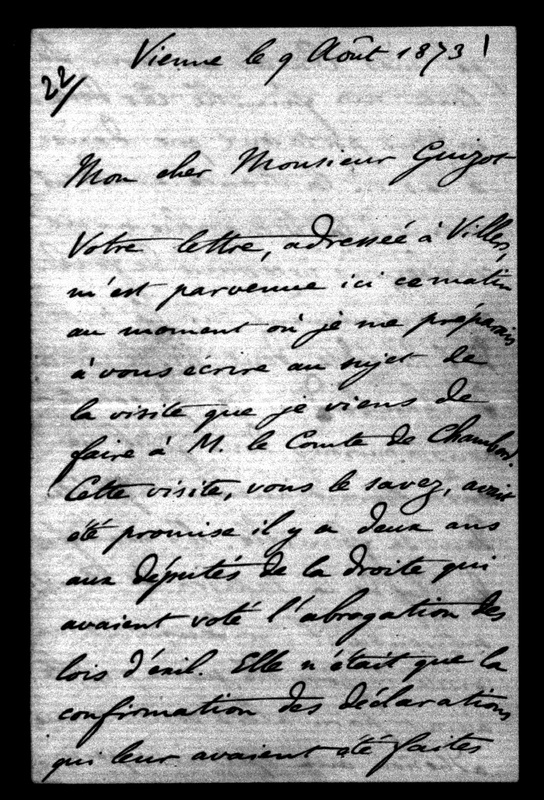 Vienne le 9 Août 1873
22/
Mon cher Monsieur Guizot
Votre lettre, adressée à Villers,
m'est parvenue ici ce matin
au moment où je me préparais
à vous écrire au sujet de
la visite que je viens de
faire à M. le Comte de Chambord.
Cette visite, vous le savez, avait
été promise il y a deux ans
aux députés de la droite qui
avaient voté l'abrogation des
lois d'exil. Elle n'était que la
confirmation des déclarations
qui leur avaient été faites